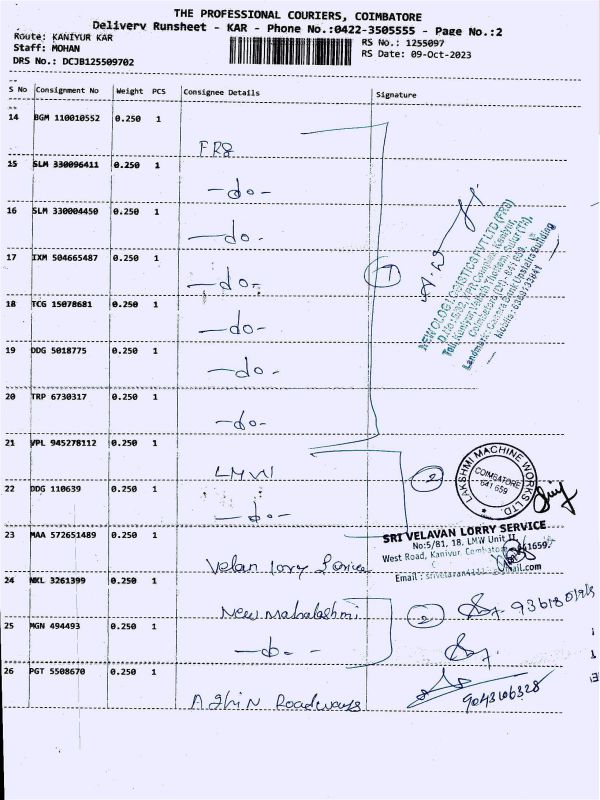 THE PROFESSIONAL COURIERS, COIMBATORE
Delivery Runsheet - KAR - Phone No.:0422-3505555 - Page No.:2
Route: KANIYUR KAR
RS No.: 1255097
Staff: MOHAN
RS Date: 09-Oct-2023
DRS No.: DCJB125509702
S No Consignment No Weight PCS Consignee Details Signature
14 BGM 110010552 0.250 1
FR8
15 SLM 330096411 0.250 1
-do-
16 SLM 330004450 0.250 1
-do-
17 IXM 504665487 0.250 1
-do-
18 TCG 15078681 0.250 1
-do-
19 DDG 5018775 0.250 1
-do-
20 TRP 6730317 0.250 1
-do-
7
NEWOLOGY LOGISTICS PVT LTD (FR8)
Coimbatore (Dt)- 641 659.
21 VPL 945278112 0.250 1
LMW
22 DDG 110639 0.250 1
-do-
2
LAKSHMI MACHINE WORKS LTD.
COIMBATORE
641 659
23 MAA 572651489 0.250 1
Velan lorry Service
SRI VELAVAN LORRY SERVICE
No:5/81, 18, LMW Unit II
West Road, Kaniyur, Coimbatore 641659.
24 NKL 3261399 0.250 1
New mahalashmi
25 MGN 494493 0.250 1
-do-
2
26 PGT 5508670 0.250 1
Roadways
9043106328